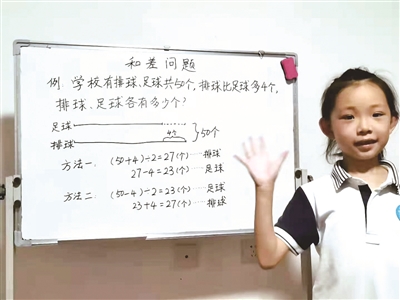 和差问题
例.学校有排球、足球共50个,排球比足球多4个,
排球、足球各有多少个?
足球
排球 4个 50个
方法一. (50+4)÷2=27(个)……排球
27-4=23(个)……足球
方法二: (50-4)÷2=23(个)……足球
23+4=27(个)……排球